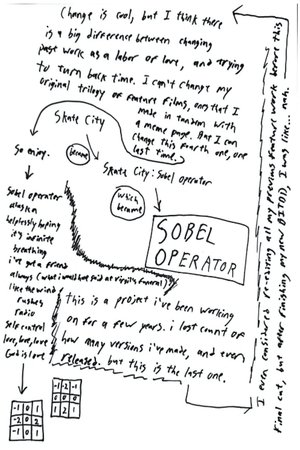 Change is cool, but I think there
is a big difference between changing
past work as a labor of love, and trying
to turn back time. I can't change my
original trilogy of feature films, ones that I
made in tandem with
a meme page. But I can
change this fourth one, one
last time.
Skate City
became
Skate City: Sobel operator
which
became
SOBEL
OPERATOR
So enjoy.
Sobel operator
alaskan
helplessly hoping
it's infinite
breathing
i've got a friend
always (what i would have said at virgil's funeral)
like the wind
rushes
radio
self control
love, love, love
God is love
-1 0 1
-2 0 2
-1 0 1
-1 -2 -1
0 0 0
1 2 1
this is a project i've been working
on for a few years. i lost count of
how many versions i've made, and even
released. but this is the last one.
I even considered re-editing all my previous feature work before this
final cut, but after finishing my new
I was like... nah.